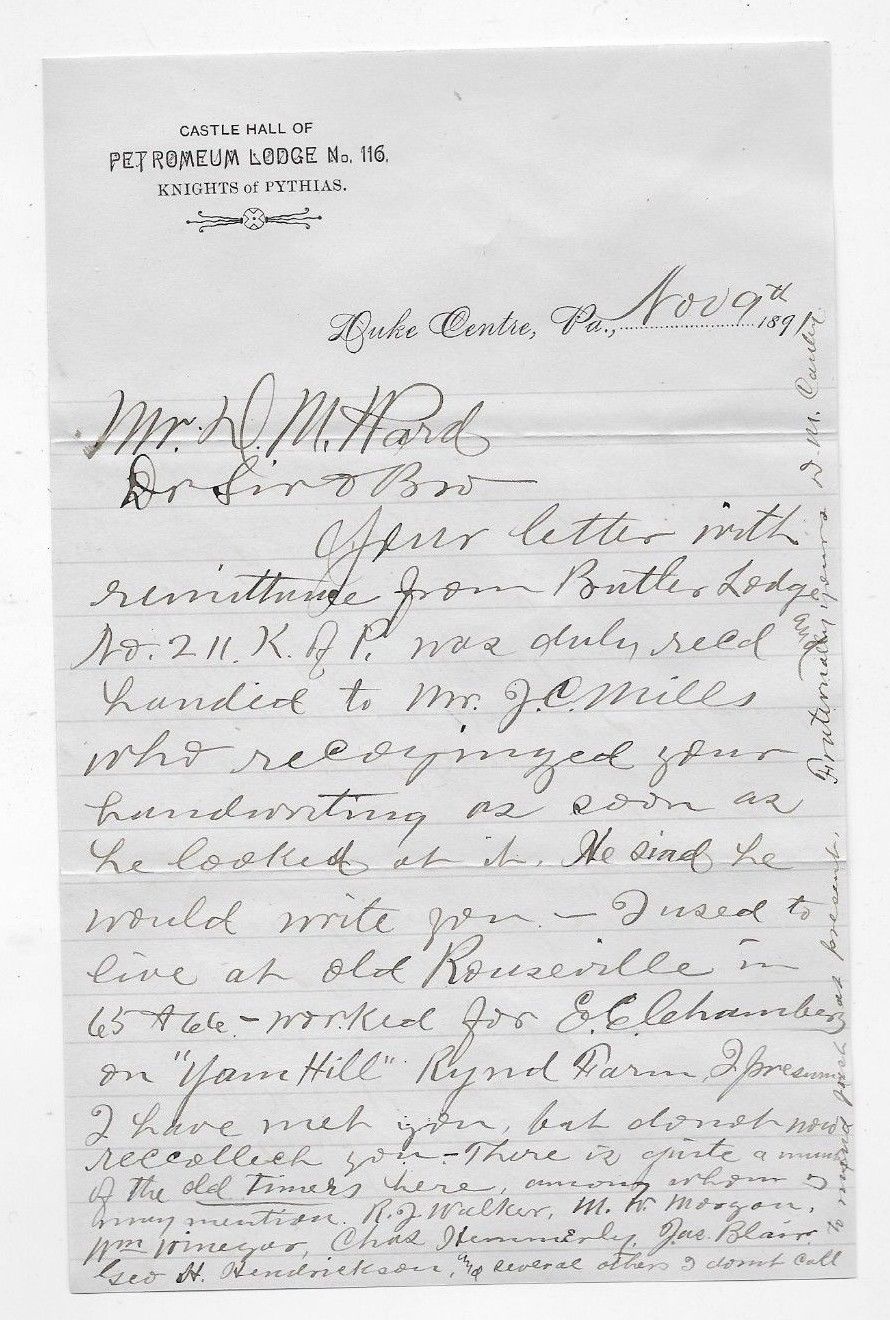 CASTLE HALL OF
PETROMEUM LODGE No. 116,
KNIGHTS of PYTHIAS.
Duke Centre, Pa., Nov 9th 1891
Mr. D. M. Ward
Dr Sir & Bro
Your letter with
remittance from Butler Lodge
No. 211. K. of P. was duly recd and
handed to Mr. J. C. Mills
who recoginzed your
handwriting as soon as
he looked at it. He siad he
would write you — I used to
live at old Rouseville in
65 & 66 — worked for E. C. Chambers
on "Yam Hill" Rynd Farm, I presume
I have met you, but donot now
reccollect you — There is quite a number
of the old timers here, among whom I
may mention. R. J. Walker, M. W. Morgan,
Wm Vinegar, Chas Hemmerly, Jas. Blair
Geo H. Hendrickson, and several others I don't call
to mind just at present.
Fraternally yours D. M.